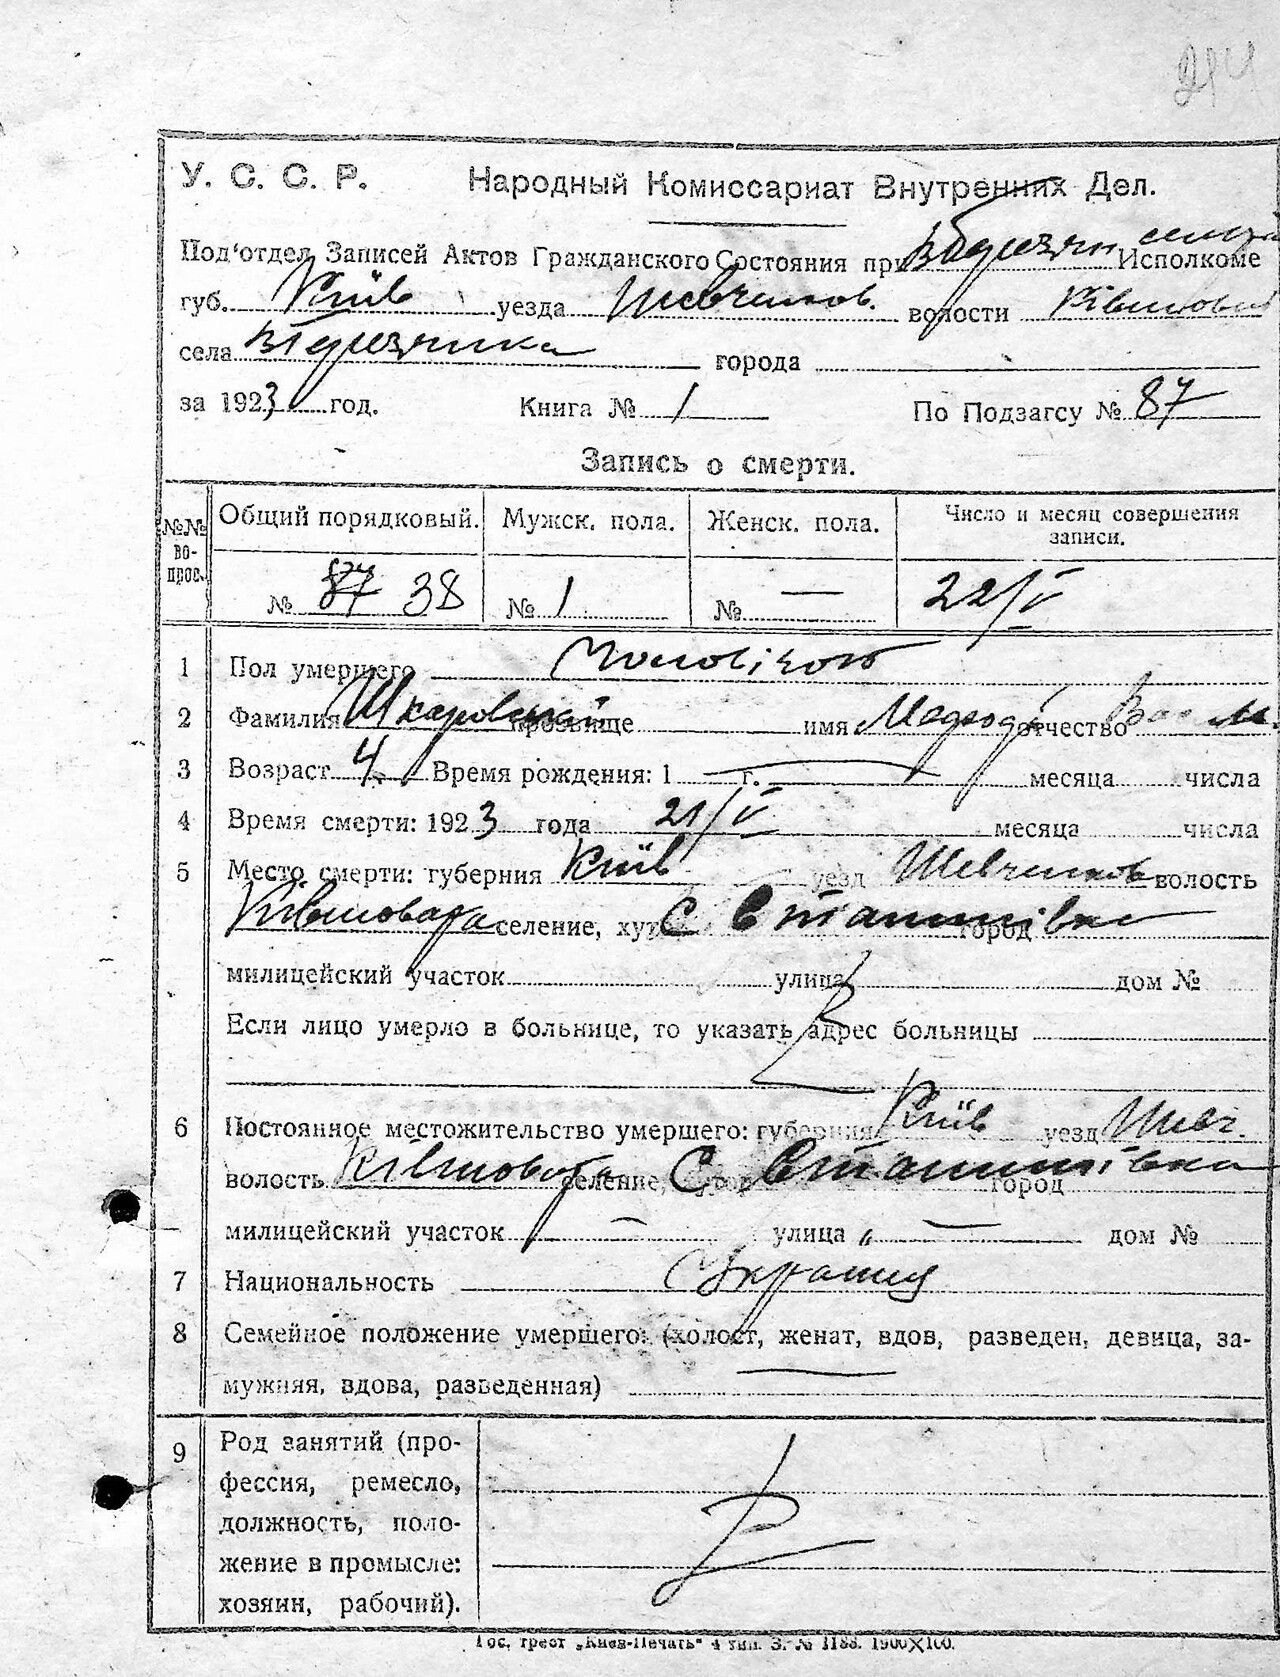 244
У. С. С. Р. Народный Комиссариат Внутренних Дел.
Под'отдел Записей Актов Гражданского Состояния при Исполкоме
губ. Київ уезда Шевченков. волости
села города
за 1923 год. Книга № 1 По Подзагсу № 87
Запись о смерти.
№№ вопрос. Общий порядковый. Мужск. пола. Женск. пола. Число и месяц совершения записи.
№ 87 38 № 1 № — 22/V
1 Пол умершего Чоловічого
2 Фамилия Шкаровський прозвище имя отчество
3 Возраст 4 Время рождения: 1 — г. месяца числа
4 Время смерти: 1923 года 21/V месяца числа
5 Место смерти: губерния Київ уезд Шевченков волость
селение, хутор С город
милицейский участок улица дом №
Если лицо умерло в больнице, то указать адрес больницы
6 Постоянное местожительство умершего: губерния Київ уезд Шевч.
волость селение, хутор С город
милицейский участок — улица — дом №
7 Национальность Украинц
8 Семейное положение умершего: (холост, женат, вдов, разведен, девица, за-
мужняя, вдова, разведенная) —
9 Род занятий (про-
фессия, ремесло,
должность, поло-
жение в промысле:
хозяин, рабочий).
Гос. трест „Киев-Печать" 4 тип. З. № 1188. 1900Х100.